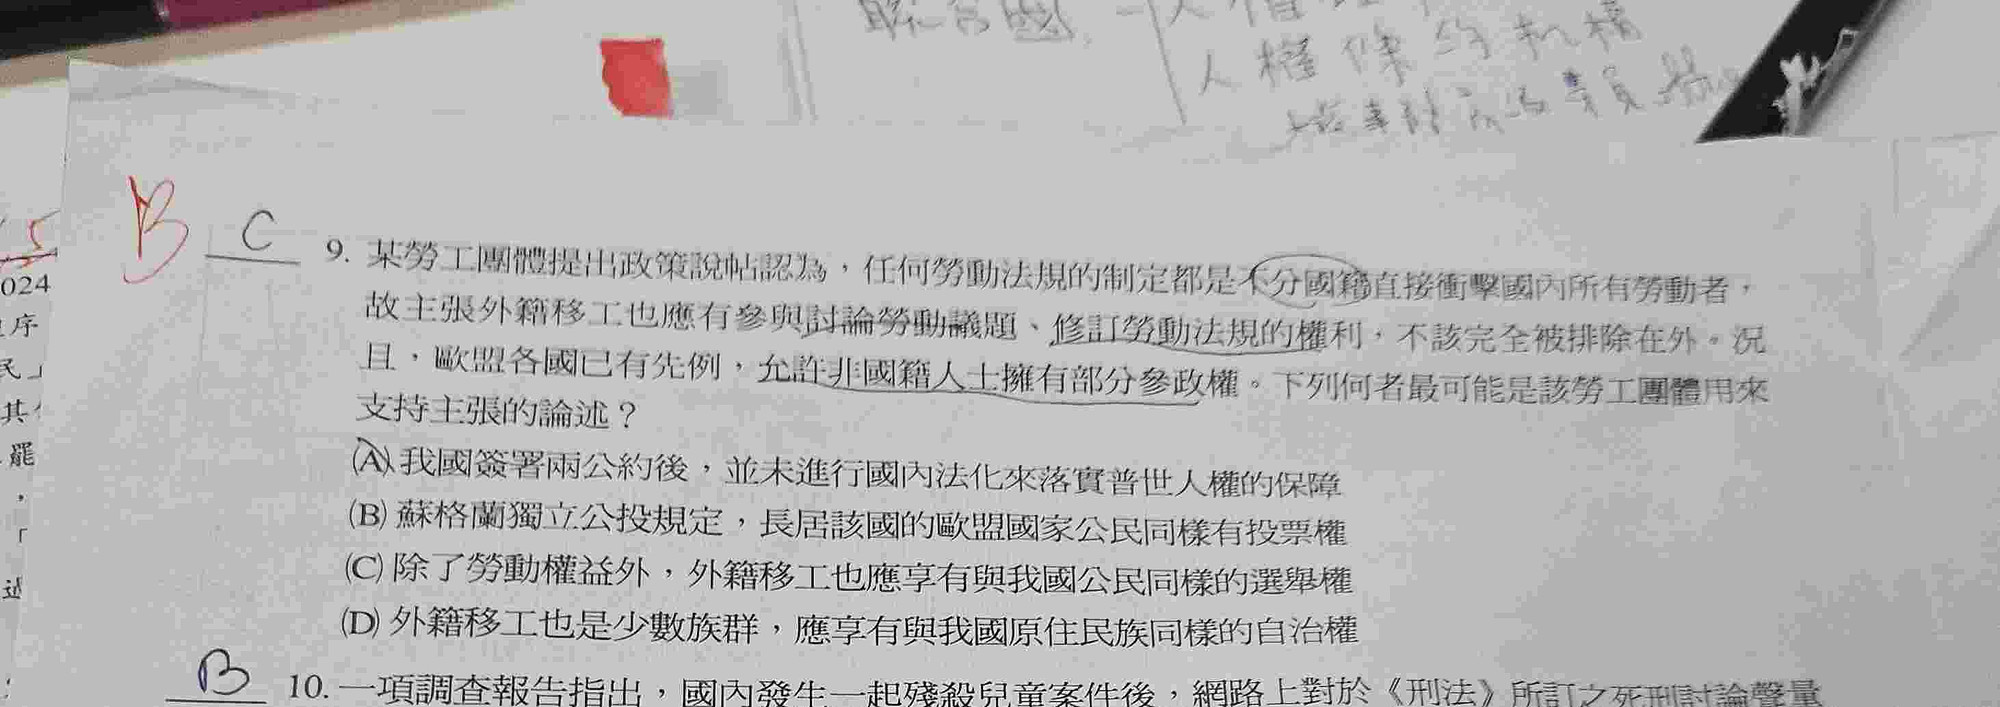 人權條約機構
B
C
9. 某勞工團體提出政策說帖認為，任何勞動法規的制定都是不分國籍直接衝擊國內所有勞動者，
故主張外籍移工也應有參與討論勞動議題、修訂勞動法規的權利，不該完全被排除在外。況
且，歐盟各國已有先例，允許非國籍人士擁有部分參政權。下列何者最可能是該勞工團體用來
支持主張的論述？
(A) 我國簽署兩公約後，並未進行國內法化來落實普世人權的保障
(B) 蘇格蘭獨立公投規定，長居該國的歐盟國家公民同樣有投票權
(C) 除了勞動權益外，外籍移工也應享有與我國公民同樣的選舉權
(D) 外籍移工也是少數族群，應享有與我國原住民族同樣的自治權
B
10. 一項調查報告指出，國內發生一起殘殺兒童案件後，網路上對於《刑法》所訂之死刑討論聲量
5
024
序
民」
其
罷
，
「